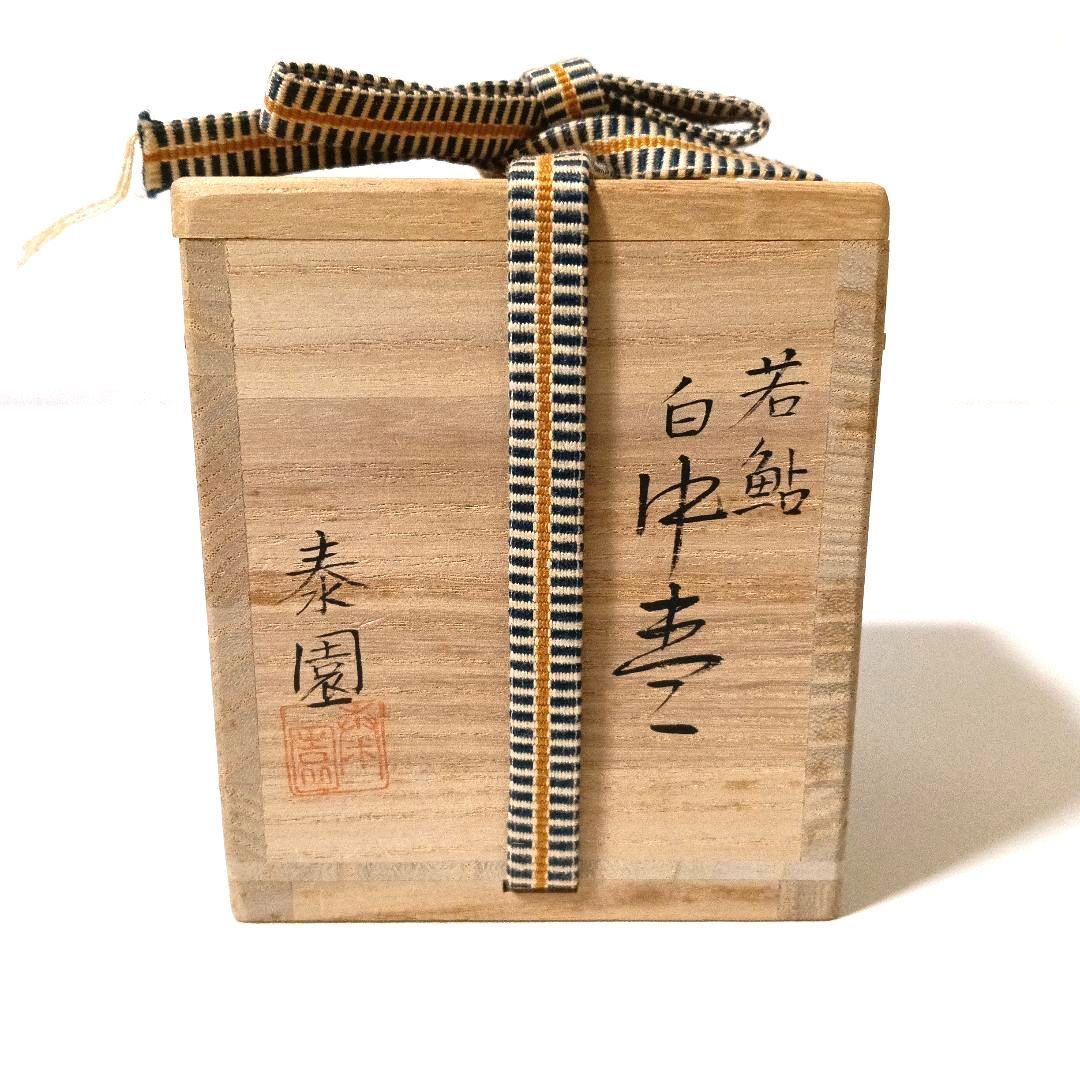 若鮎
白中棗
泰園